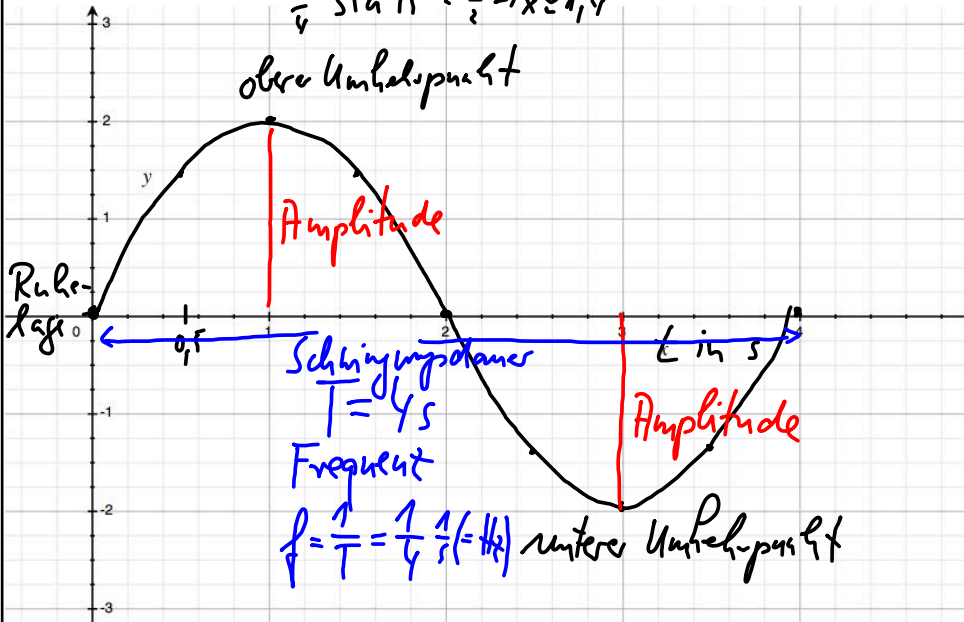 3
oberer Umkehrpunkt
2
y
1
Amplitude
Ruhe-
lage
0
0,5
1
2
3
4
t in s
Schwingungsdauer
T = 4s
-1
Amplitude
Frequenz
-2
f = 1/T = 1/4 1/s (= Hz)
unterer Umkehrpunkt
-3